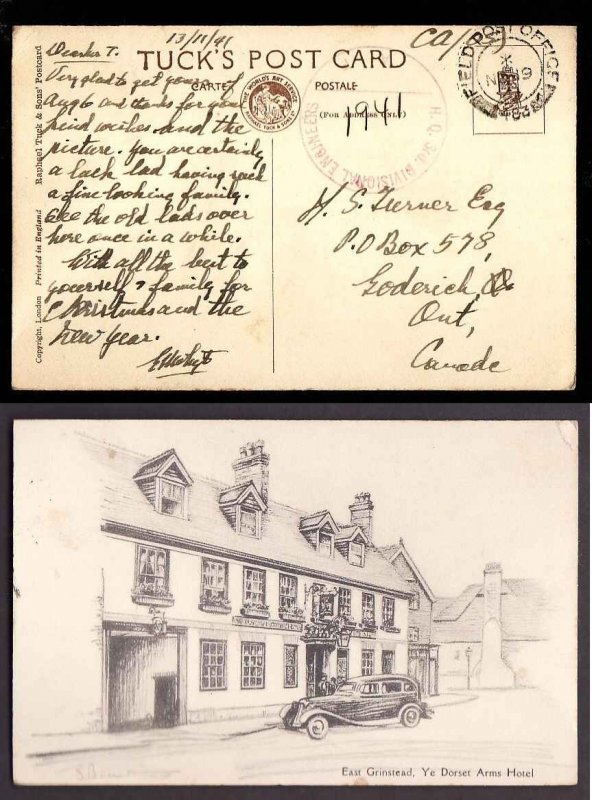 13/11/41
TUCK'S POST CARD
CARTE POSTALE
(For Address Only)
1941
THE WORLD'S ART SERVICE
RAPHAEL TUCK & SONS LTD
H.Q. 3rd. DIVISIONAL ENGINEERS
FIELD POST OFFICE
Raphael Tuck & Sons' Postcard
Copyright, London Printed in England
Very glad to get yours of
Aug 10 and thanks for your
kind wishes and the
picture. You are certainly
a luck lad having such
a fine looking family.
See the old lads over
here once in a while.
With all the best to
yourself & family for
Christmas and the
New Year.
H. S. Turner Esq
P.O Box 578,
Goderich
Ont,
Canada
East Grinstead, Ye Dorset Arms Hotel